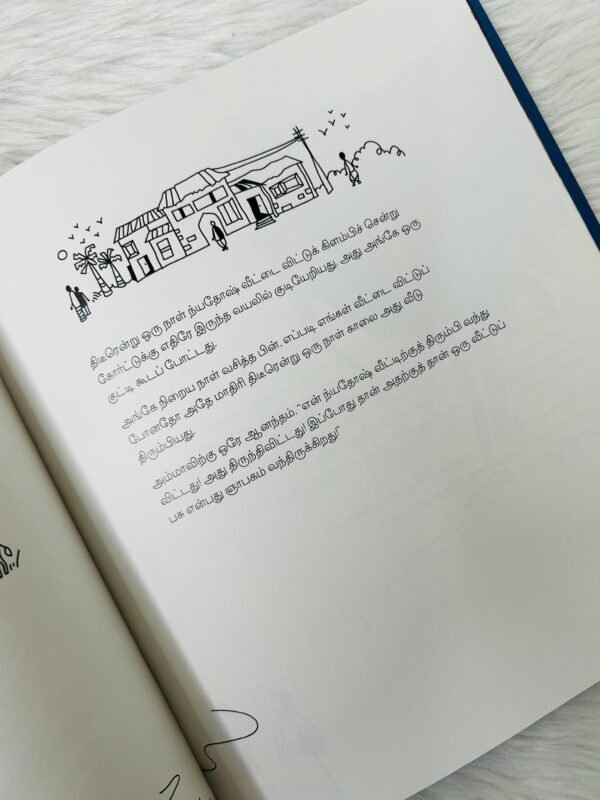 திடீரென்று ஒரு நாள் ந்யதோஷ் வீட்டை விட்டுக் கிளம்பிச் சென்று
கோர்ட்டுக்கு எதிரே இருந்த வயலில் குடியேறியது. அது அங்கே ஒரு
குட்டி கூடப் போட்டது.
அங்கே நிறைய நாள் வசித்த பின், எப்படி எங்கள் வீட்டை விட்டுப்
போனதோ அதே மாதிரி திடீரென்று ஒரு நாள் காலை அது வீடு
திரும்பியது.
அம்மாவிற்கு ஒரே ஆனந்தம். "என் ந்யதோஷ் வீட்டிற்குத் திரும்பி வந்து
விட்டது! அது திருந்திவிட்டது! இப்போது தான் அதற்குத் தான் ஒரு வீட்டுப்
பசு என்பது ஞாபகம் வந்திருக்கிறது!"